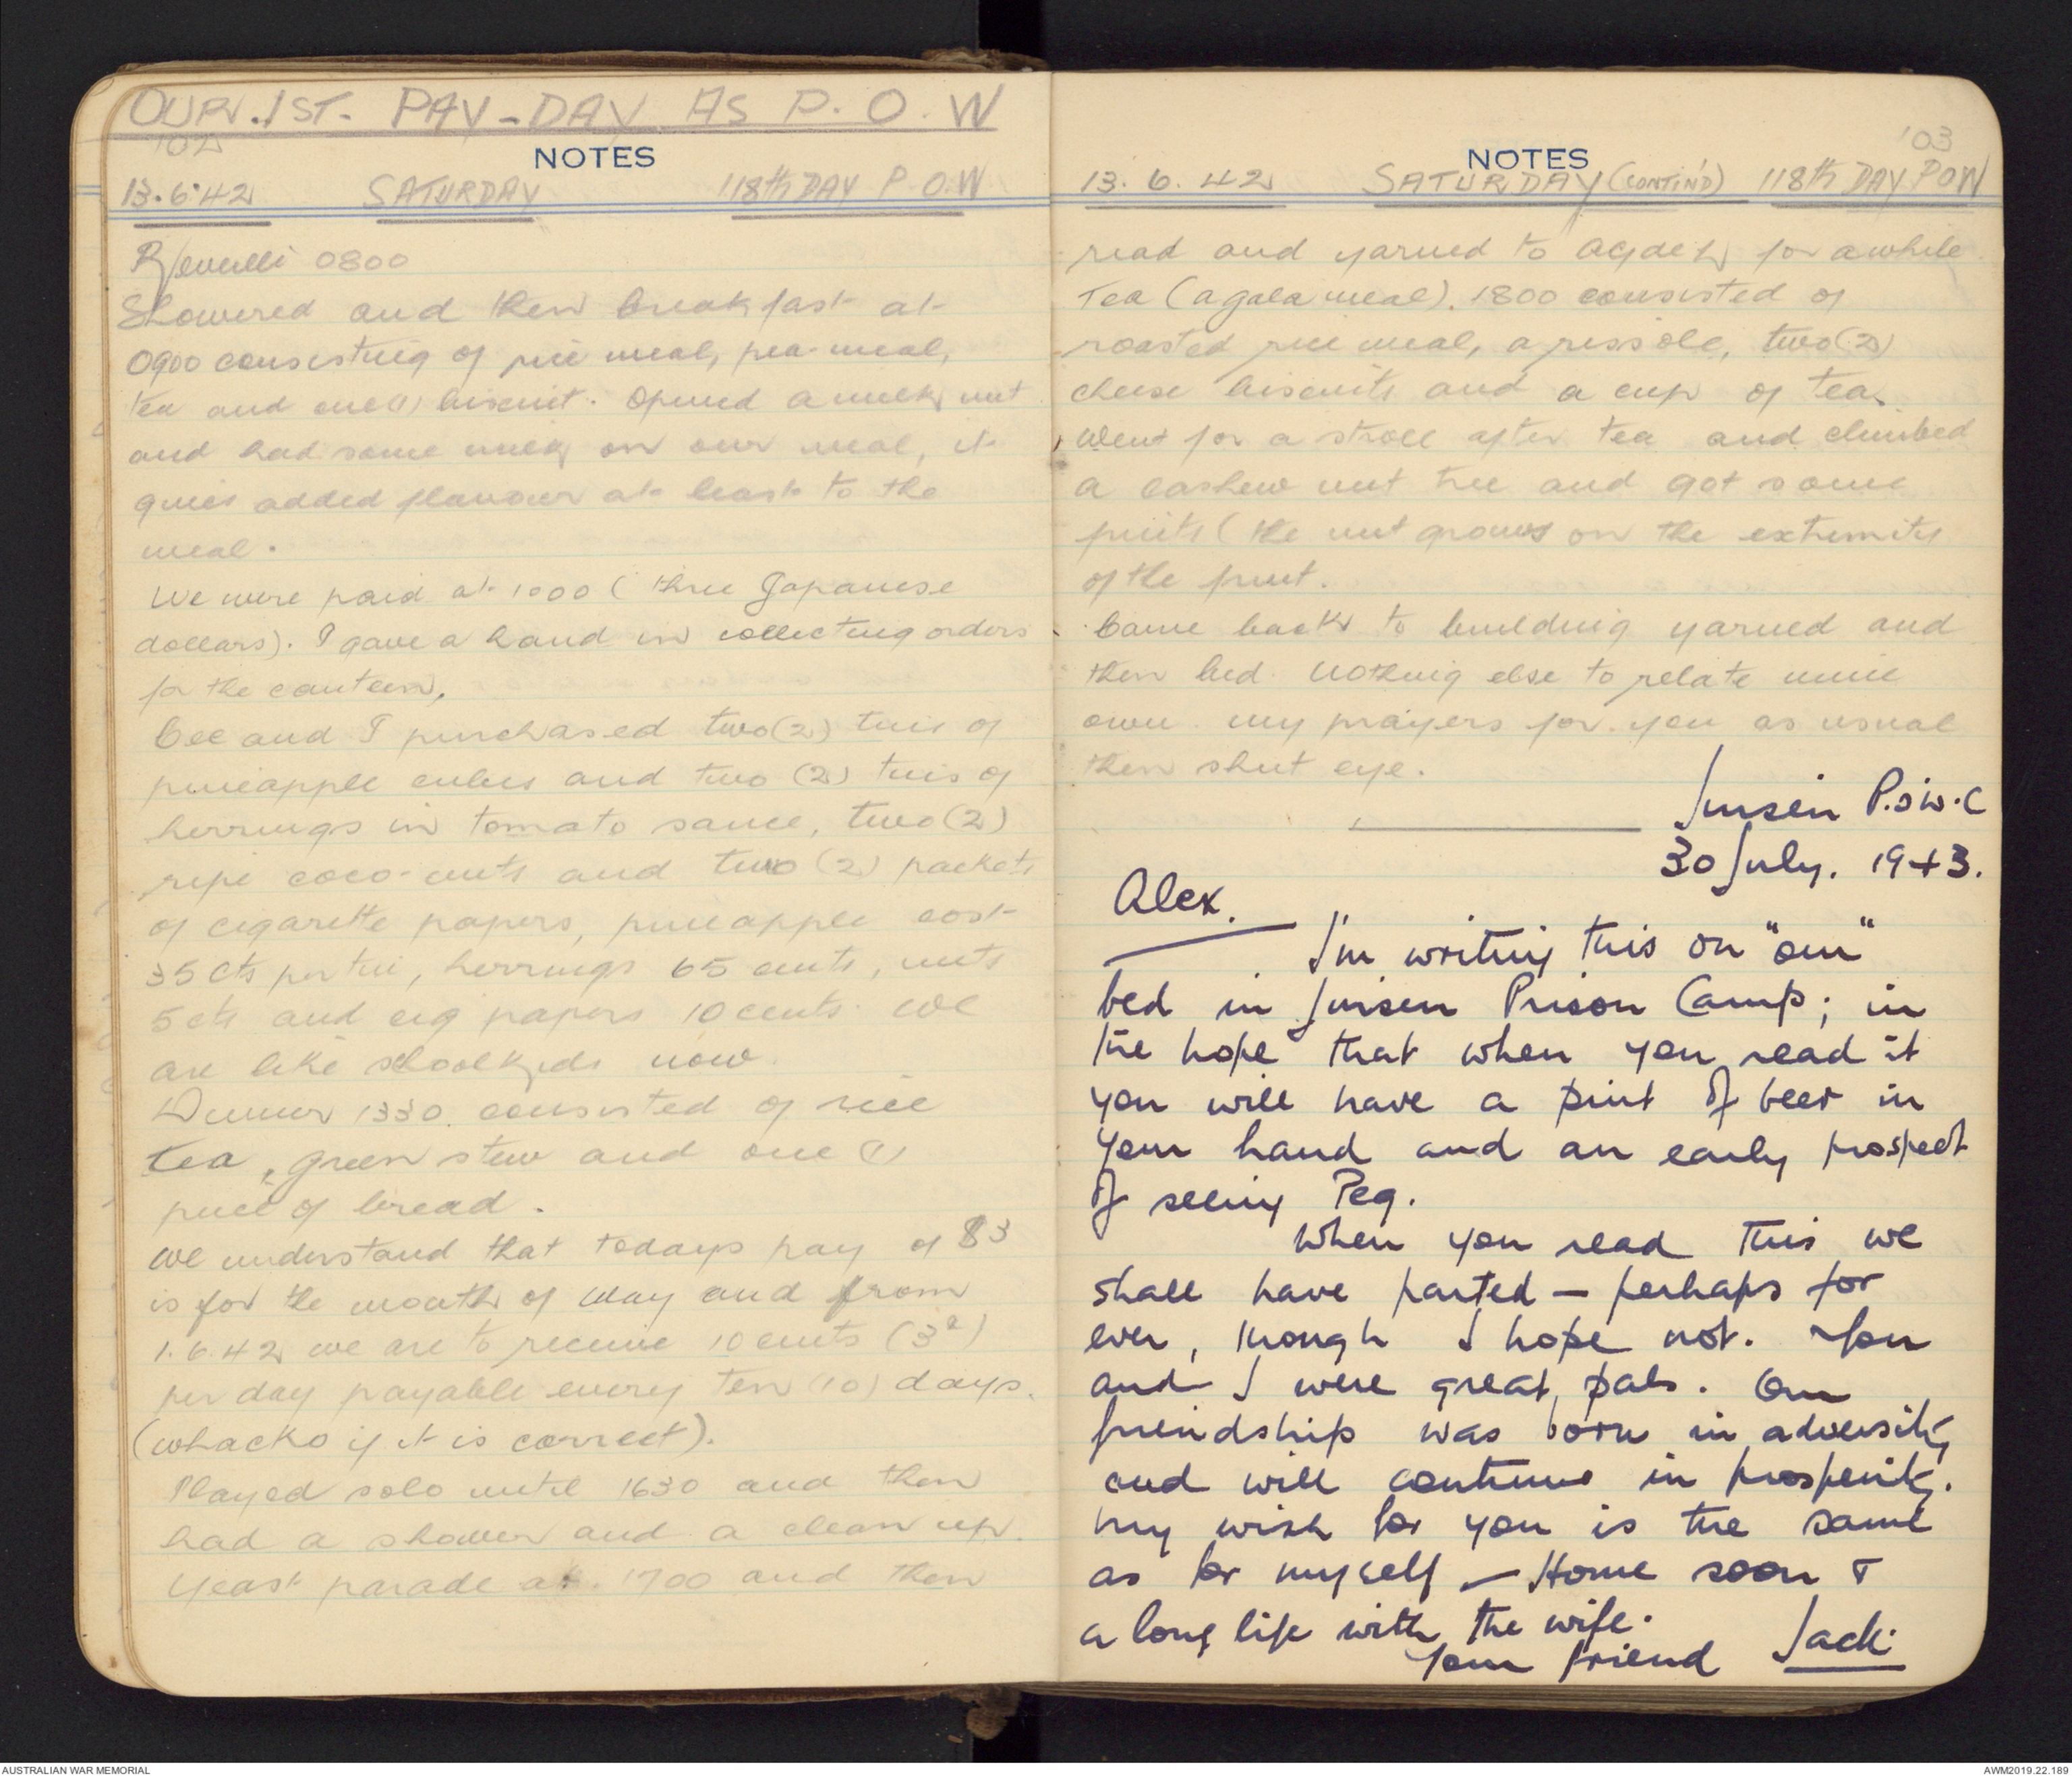 OUR 1ST. PAY-DAY AS P.O.W
102
NOTES
13.6.42 SATURDAY 118th DAY P.O.W
Reveilli 0800
Showered and then breakfast at
0900 consisting of rice meal, pea-meal,
tea and one (1) biscuit. Opened a milk, nut
and had some milk on our meal, it
gives added flavour at least to the
meal.
We were paid at 1000 (three Japanese
dollars). I gave a hand in collecting orders
for the canteen.
Cec and I purchased two (2) tins of
pineapple cubes and two (2) tins of
herrings in tomato sauce, two (2)
ripe coco-nuts and two (2) packets
of cigarette papers, pineapple cost
35 cts per tin, herrings 65 cents, nuts
5 cts and cig papers 10 cents. We
are like schoolkids now.
Dinner 1330. consisted of rice
tea, green stew and one (1)
piece of bread.
We understand that todays pay of $3
is for the month of May and from
1.6.42 we are to receive 10 cents (3d)
per day payable every ten (10) days.
(whacko if it is correct).
Played solo until 1630 and then
had a shower and a clean up.
Yeast parade at. 1700 and then
103
NOTES
13.6.42 SATURDAY (CONTIN'D) 118th DAY POW
read and yarned to for awhile.
Tea (a gala meal). 1800 consisted of
roasted rice meal, a rissole, two (2)
cheese biscuits and a cup of tea.
Went for a stroll after tea and climbed
a cashew nut tree and got some
fruits (the nut grows on the extremity
of the fruit.
Came back to building yarned and
then bed. Nothing else to relate mine
own. My prayers for you as usual
then shut eye.
Jinsen P.O.W.C
30 July. 1943.
Alex.
I'm writing this on "our"
bed in Jinsen Prison Camp; in
the hope that when you read it
you will have a pint of beer in
your hand and an early prospect
of seeing Peg.
When you read this we
shall have parted – perhaps for
ever, though I hope not. You
and I were great pals. Our
friendship was born in adversity
and will continue in prosperity.
My wish for you is the same
as for myself – Home soon &
a long life with the wife.
Your friend Jack.
AUSTRALIAN WAR MEMORIAL
AWM2019.22.189